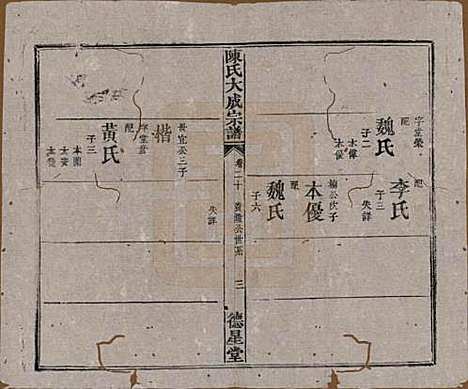 字堂榮
配
魏氏
子二
本偉
本優
配
李氏
子三
失詳
楠公次子
本優
配
魏氏
子六
陳氏大成宗譜
卷二十
公世系
三
德星堂
失詳
長宜公三子
楷
字堂
配
黃氏
子三
本蘭